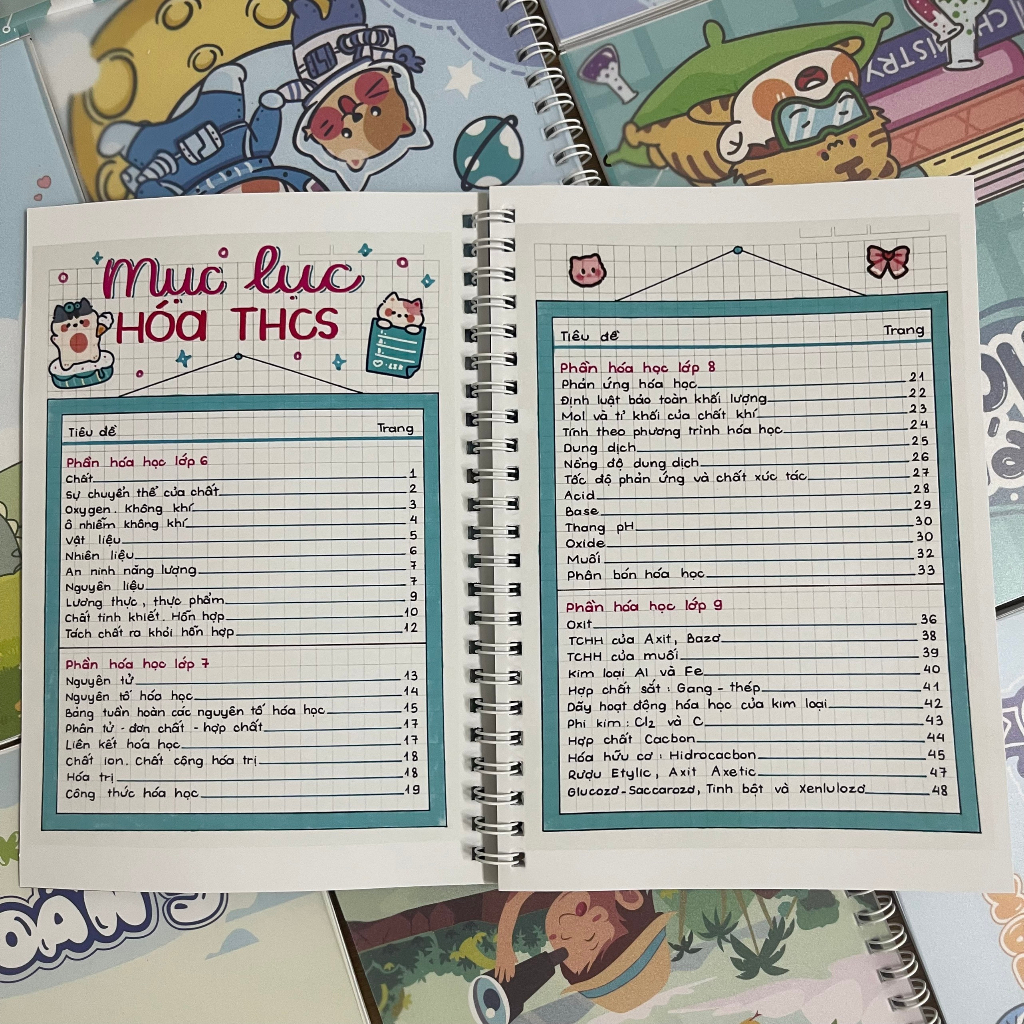 CHEMISTRY
Mục lục
HÓA THCS
Tiêu đề Trang
Phần hóa học lớp 6
Chất 1
Sự chuyển thể của chất 2
Oxygen. Không khí 3
Ô nhiễm không khí 4
Vật liệu 5
Nhiên liệu 6
An ninh năng lượng 7
Nguyên liệu 7
Lương thực, thực phẩm 9
Chất tinh khiết. Hỗn hợp 10
Tách chất ra khỏi hỗn hợp 12
Phần hóa học lớp 7
Nguyên tử 13
Nguyên tố hóa học 14
Bảng tuần hoàn các nguyên tố hóa học 15
Phân tử - đơn chất - hợp chất 17
Liên kết hóa học 17
Chất ion. Chất cộng hóa trị 18
Hóa trị 18
Công thức hóa học 19
Tiêu đề Trang
Phần hóa học lớp 8
Phản ứng hóa học 21
Định luật bảo toàn khối lượng 22
Mol và tỉ khối của chất khí 23
Tính theo phương trình hóa học 24
Dung dịch 25
Nồng độ dung dịch 26
Tốc độ phản ứng và chất xúc tác 27
Acid 28
Base 29
Thang pH 30
Oxide 30
Muối 32
Phân bón hóa học 33
Phần hóa học lớp 9
Oxit 36
TCHH của Axit, Bazơ 38
TCHH của muối 39
Kim loại Al và Fe 40
Hợp chất sắt: Gang - thép 41
Dãy hoạt động hóa học của kim loại 42
Phi kim: Cl₂ và C 43
Hợp chất Cacbon 44
Hóa hữu cơ: Hidrocacbon 45
Rượu Etylic, Axit Axetic 47
Glucozơ - Saccarozơ, Tinh bột và Xenlulozơ 48